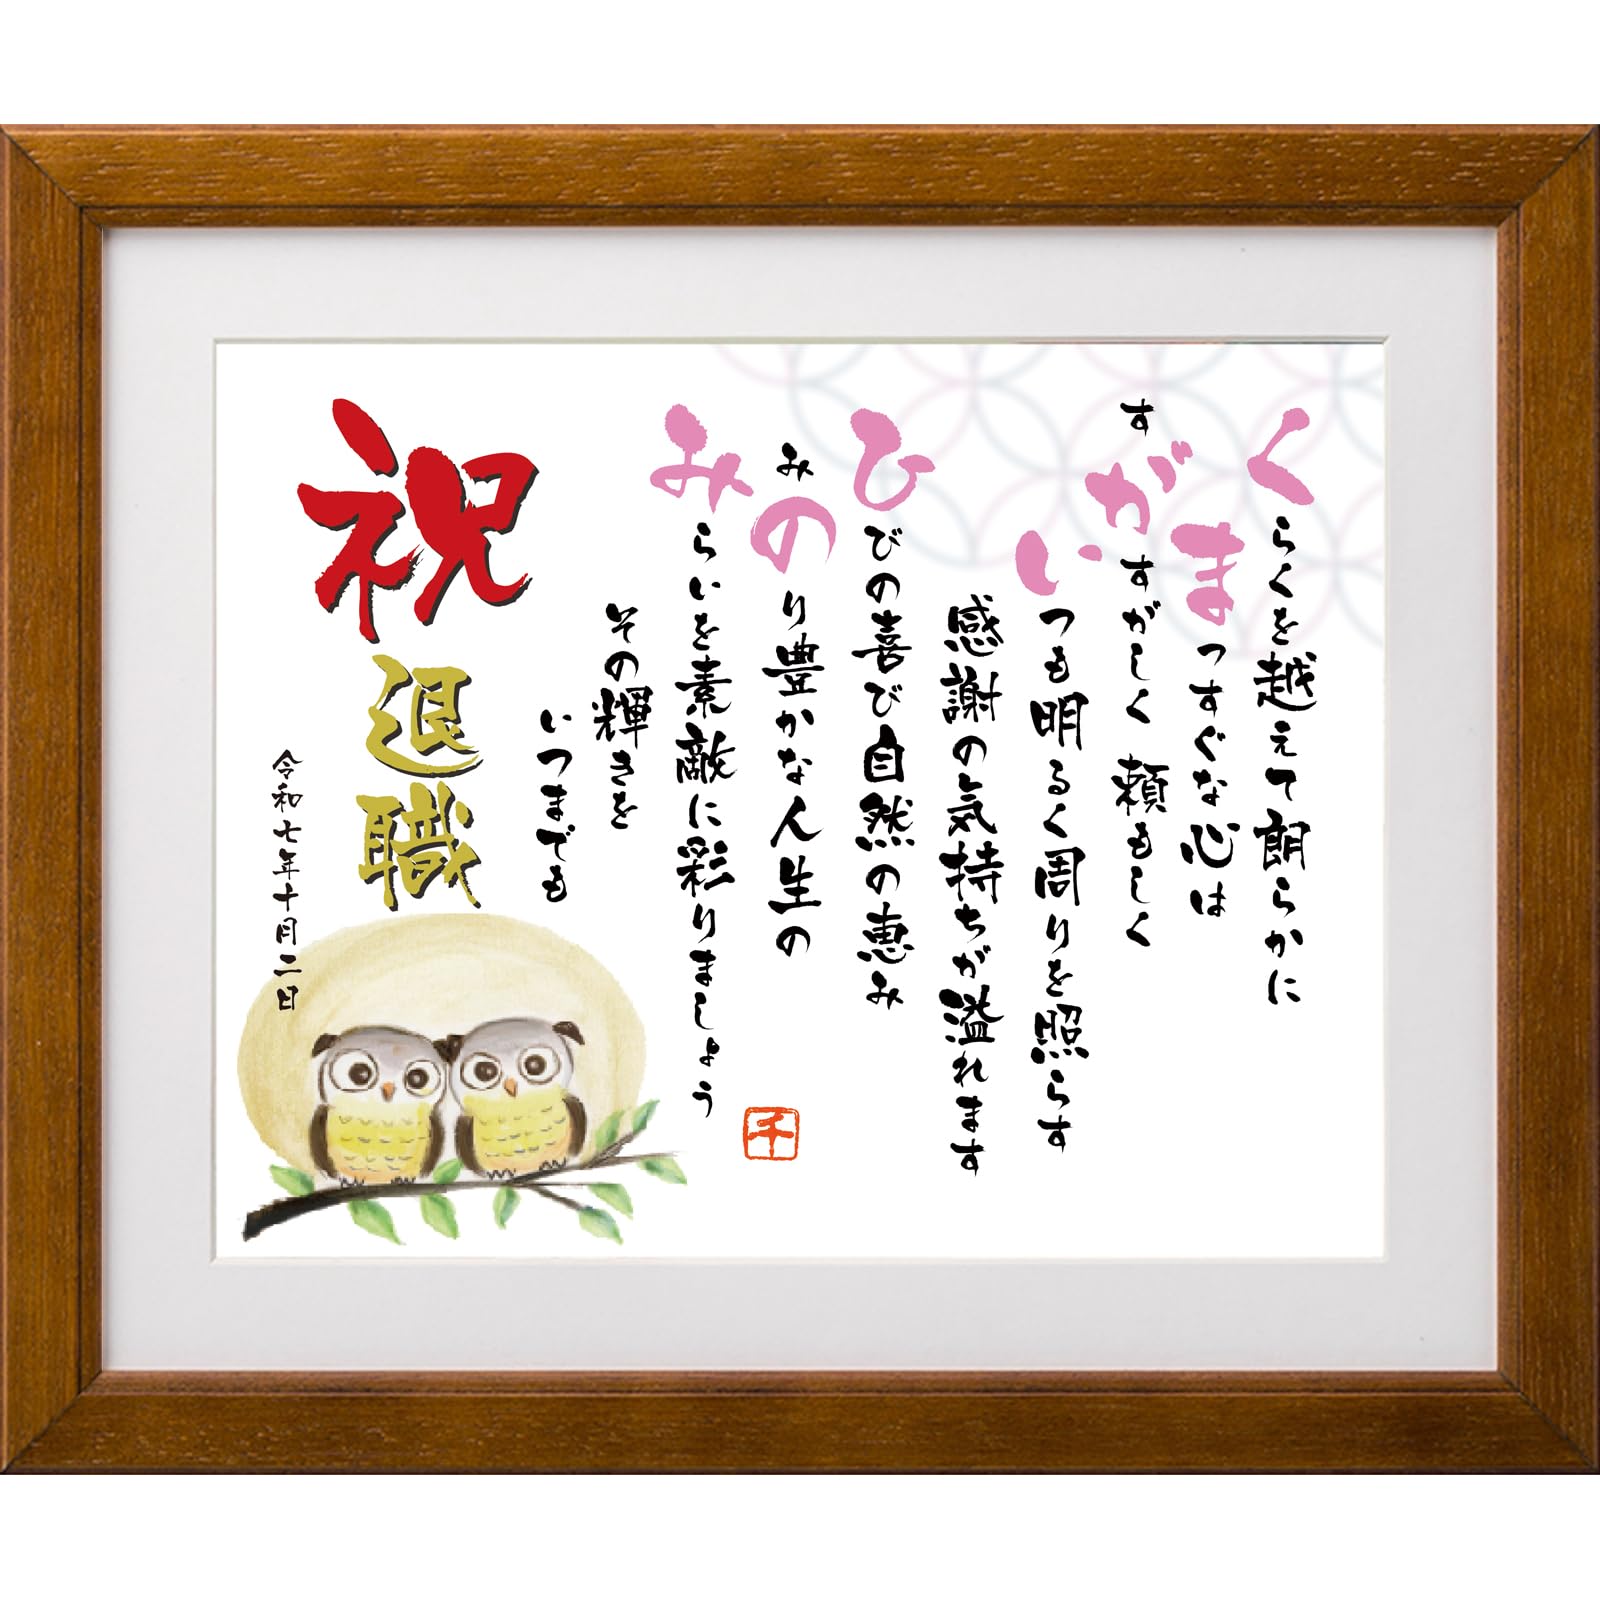 くらくを越えて朗らかに
まっすぐな心は
すがすがしく 頼もしく
いつも明るく周りを照らす
感謝の気持ちが溢れます
ひびの喜び自然の恵み
みのり豊かな人生の
みらいを素敵に彩りましょう
その輝きを
いつまでも
祝
退職
令和七年十月二日
千